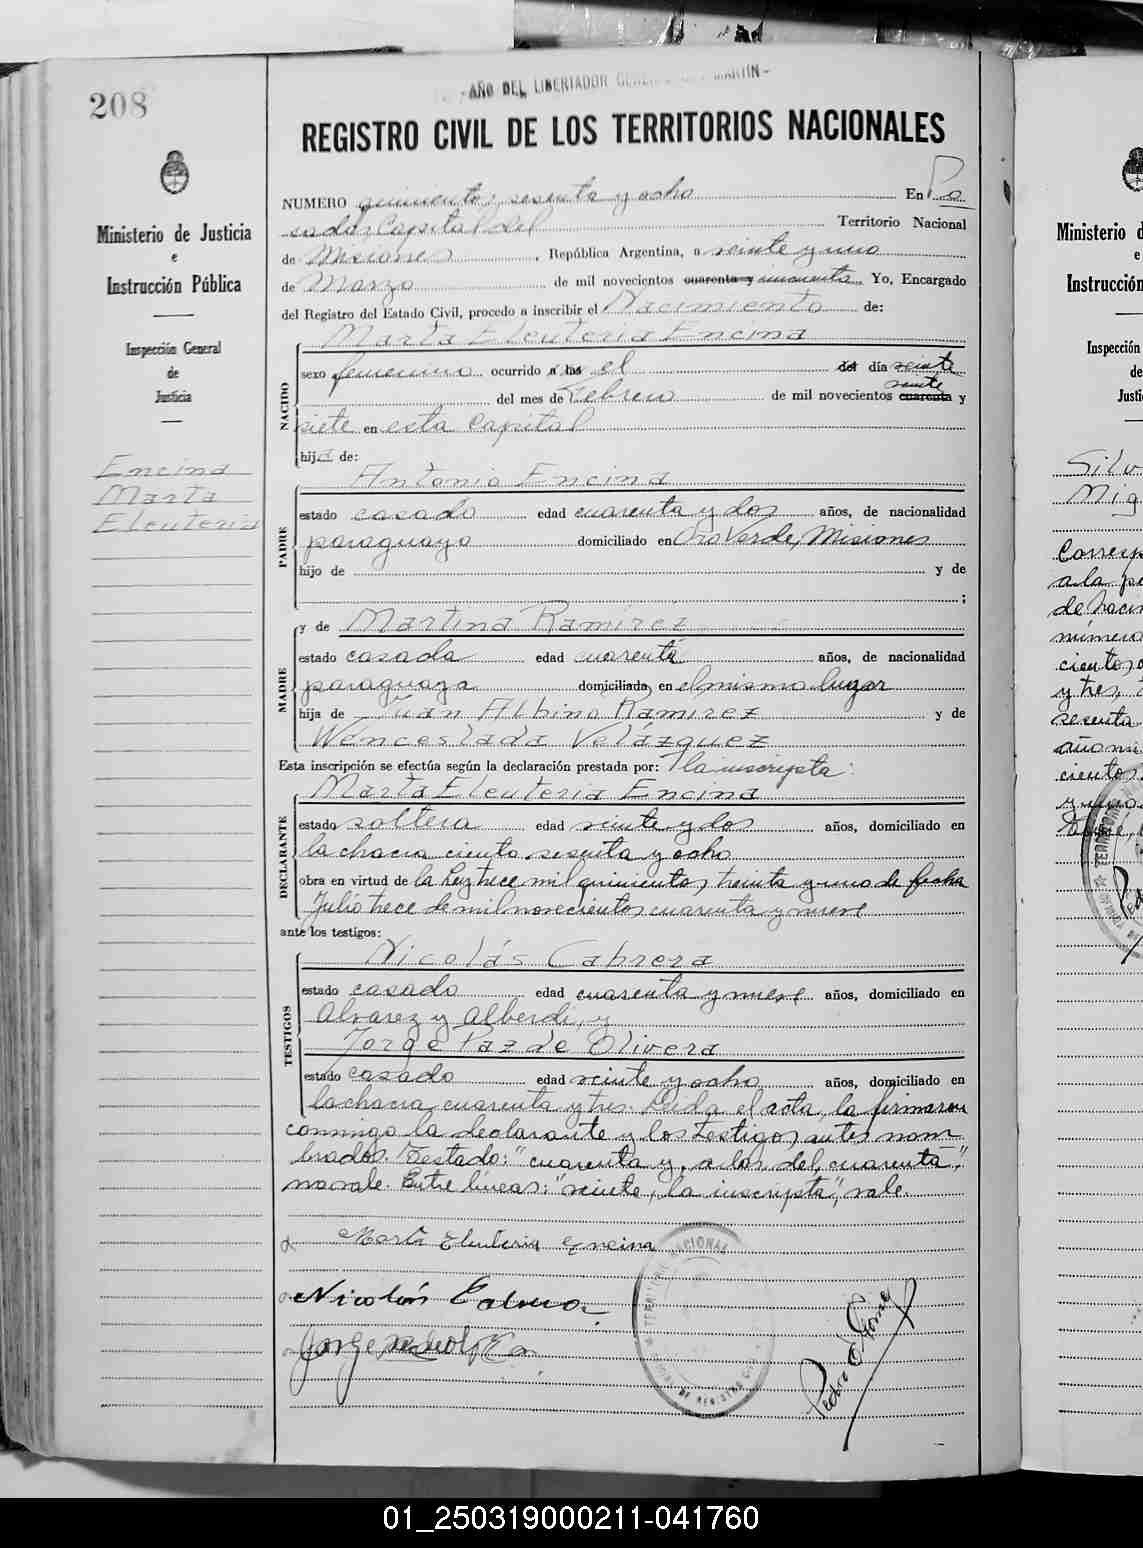 208
AÑO DEL LIBERTADOR GENERAL MARTIN
REGISTRO CIVIL DE LOS TERRITORIOS NACIONALES
Ministerio de Justicia
e
Instrucción Pública
Inspección General
de
Justicia
Encina
Marta
Eleuteria
NUMERO quinientos sesenta y ocho En Po
sadas Capital del Territorio Nacional
de Misiones, República Argentina, a veinte y uno
de Marzo de mil novecientos cuarenta y cincuenta Yo, Encargado
del Registro del Estado Civil, procedo a inscribir el Nacimiento de:
NACIDO
Marta Eleuteria Encina
sexo femenino ocurrido a las el del día veinte
veinte
del mes de Febrero de mil novecientos cuarenta y
siete en esta Capital
hija de:
PADRE
Antonio Encina
estado casado edad cuarenta y dos años, de nacionalidad
paraguaya domiciliado en Oro Verde, Misiones
hijo de y de
;
MADRE
y de Martina Ramírez
estado casada edad cuarenta años, de nacionalidad
paraguaya domiciliada en el mismo lugar
hija de Juan Albino Ramirez y de
Wenceslada Velázquez
Esta inscripción se efectúa según la declaración prestada por: la inscripta:
DECLARANTE
Marta Eleuteria Encina
estado soltera edad veinte y dos años, domiciliado en
la chacra ciento sesenta y ocho
obra en virtud de la Ley trece mil quinientos treinta y uno de fecha
Julio trece de mil novecientos cuarenta y nueve
ante los testigos:
TESTIGOS
Nicolás Cabrera
estado casado edad cuarenta y nueve años, domiciliado en
Alvarez y Alberdi, y
Jorge Paz de Olivera
estado casado edad veinte y ocho años, domiciliado en
la chacra cuarenta y tres. Leida el acta, la firmaron
conmigo la declarante y los testigos antes nom
brados. Testado: "cuarenta y, a las, del, cuarenta",
no vale. Entre líneas: "veinte, la inscripta", vale.
Marta Eleuteria Encina
Nicolás Cabrera
Jorge
TERRITORIO NACIONAL
DE REGISTRO CIVIL
Pedro
Ministerio d
e
Instrucción
Inspección
de
Justi
Silv
Mig
Corresp
a la pa
de nacim
número
ciento
y tres,
sesenta
año mi
cientos
y uno
01_250319000211-041760